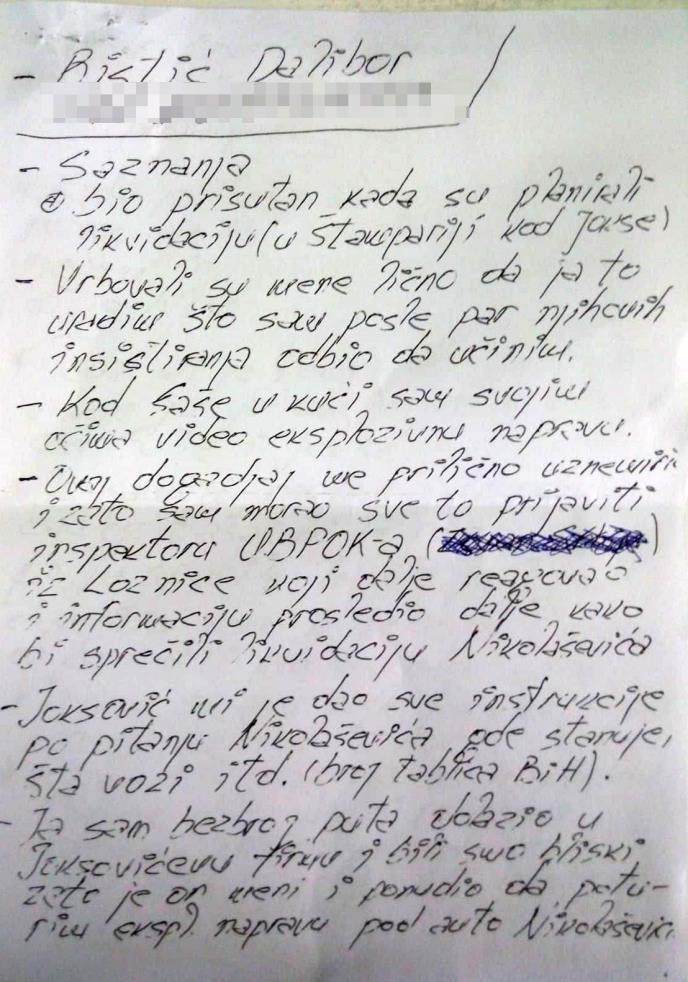 - Ristić Dalibor
- Saznanja
bio prisutan kada su planirali
likvidaciju (u štampariji kod Jokse)
- Vrbovali su mene lično da ja to
uradim što sam posle par njihovih
insistiranja odbio da učinim.
- Kod Saše u kući sam svojim
očima video eksplozivnu napravu.
- Ovaj dogadjaj me prilično uznemiri
i zato sam morao sve to prijaviti
inspektoru UBPOK-a (
)
iz Loznice koji dalje reagovao
i informaciju prosledio dalje kako
bi sprečili likvidaciju Nikolaševića
- Joksović mi je dao sve instrukcije
po pitanju Nikolaševića gde stanuje,
šta vozi itd. (broj tablica BiH).
- Ja sam bezbroj puta dolazio u
Joksovićevu firmu i bili smo bliski
zato je on meni i ponudio da potu-
rim ekspl. napravu pod auto